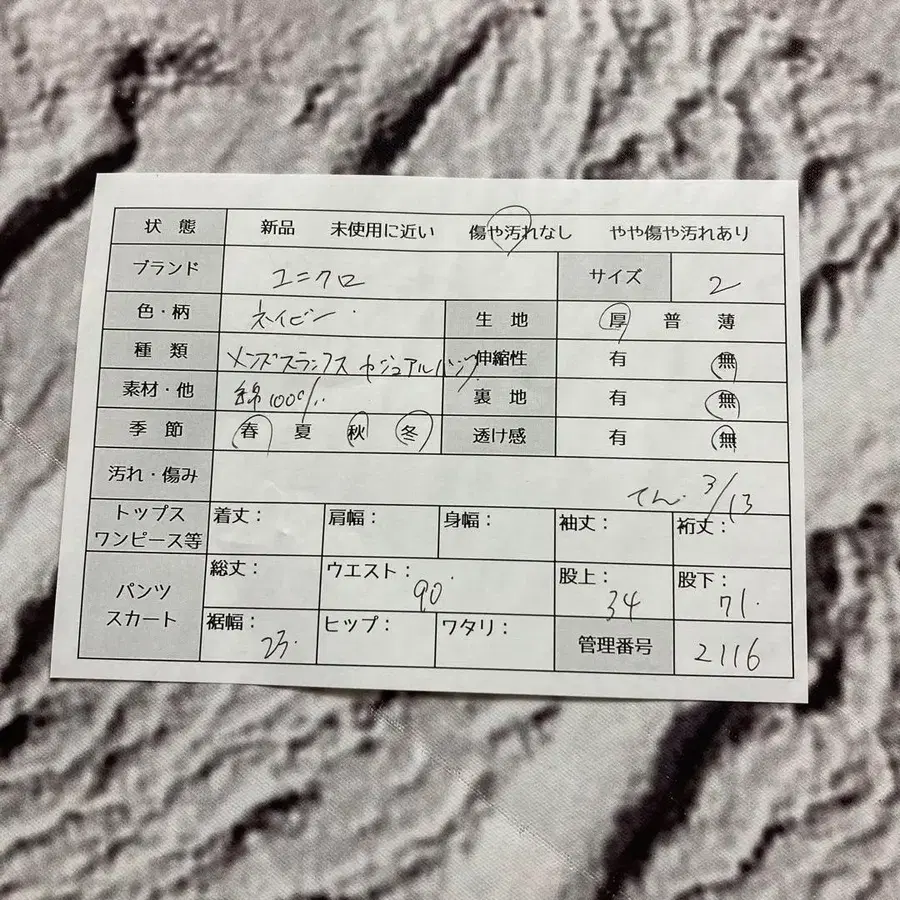 状態 新品 未使用に近い 傷や汚れなし やや傷や汚れあり
ブランド ユニクロ サイズ 2
色・柄 ネイビー 生地 厚 普 薄
種類 メンズスラックス カジュアルパンツ 伸縮性 有 無
素材・他 綿100% 裏地 有 無
季節 春 夏 秋 冬 透け感 有 無
汚れ・傷み てん. 3/13
トップス ワンピース等 着丈: 肩幅: 身幅: 袖丈: 裄丈:
パンツ スカート 総丈: ウエスト: 90 股上: 34 股下: 71.
裾幅: 23. ヒップ: ワタリ: 管理番号 2116